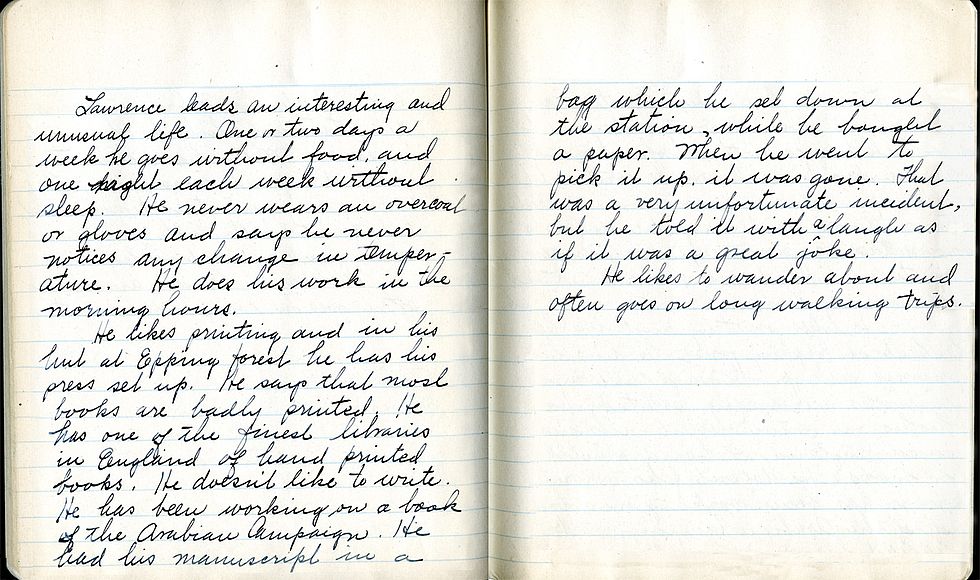 Lawrence leads an interesting and
unusual life. One or two days a
week he goes without food, and
one night each week without
sleep. He never wears an overcoat
or gloves and says he never
notices any change in temper-
ature. He does his work in the
morning hours.
He likes printing and in his
hut at Epping forest he has his
press set up. He says that most
books are badly printed. He
has one of the finest libraries
in England of hand printed
books. He doesn't like to write.
He has been working on a book
of the Arabian Campaign. He
had his manuscript in a
bag which he set down at
the station, while he bought
a paper. When he went to
pick it up, it was gone. That
was a very unfortunate incident,
but he told it with a laugh as
if it was a great joke.
He likes to wander about and
often goes on long walking trips.